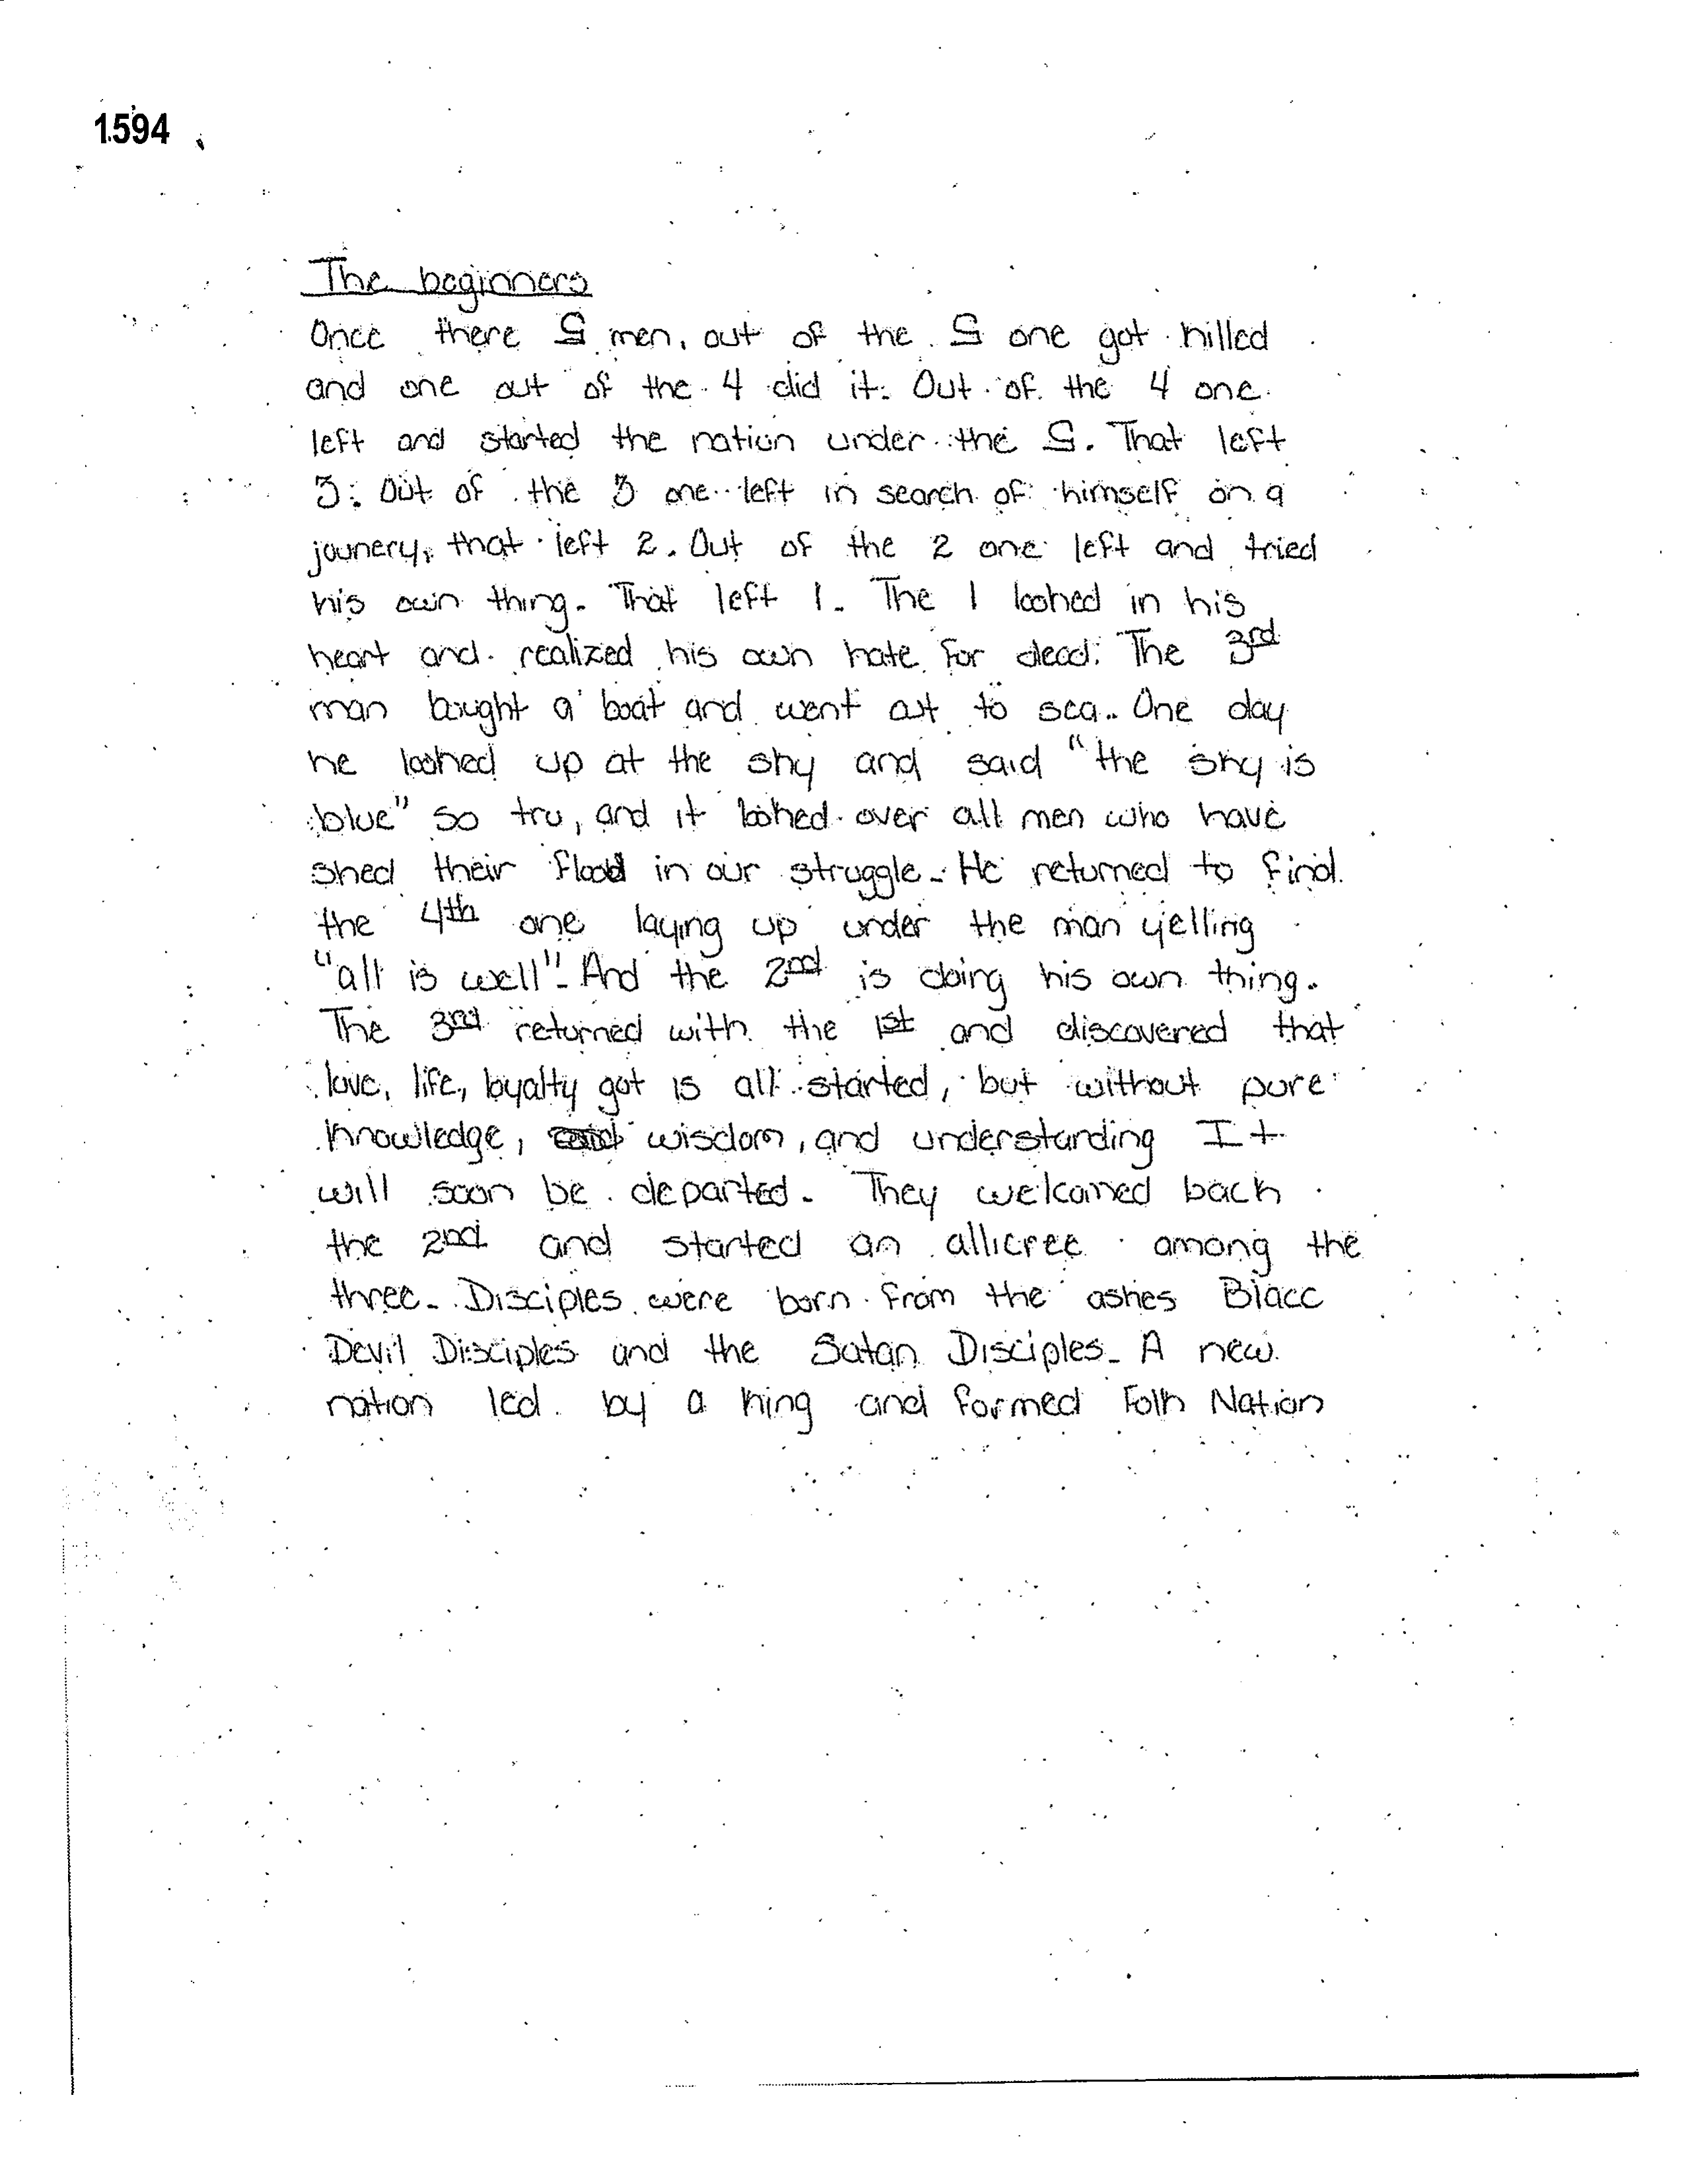 1594
The beginners
Once there 5 men, out of the 5 one got hilled
and one out of the 4 did it. Out of the 4 one
left and started the nation under the 5. That left
3. Out of the 3 one left in search of himself on a
jounery, that left 2. Out of the 2 one left and tried
his own thing. That left 1. The 1 loohed in his
heart and realized his own hate for dead. The 3rd
man bought a boat and went out to sea. One day
he loohed up at the shy and said "the shy is
blue" so tru, and it loohed over all men who have
shed their flood in our struggle. He returned to find
the 4th one laying up under the man yelling
"all is well". And the 2nd is doing his own thing.
The 3rd returned with the 1st and discovered that
love, life, loyalty got is all started, but without pure
Knowledge, wisdom, and understanding It
will soon be departed. They welcomed bach
the 2nd and started an among the
three. Disciples were born from the ashes Blacc
Devil Disciples and the Satan Disciples. A new
nation led by a hing and formed Folh Nation